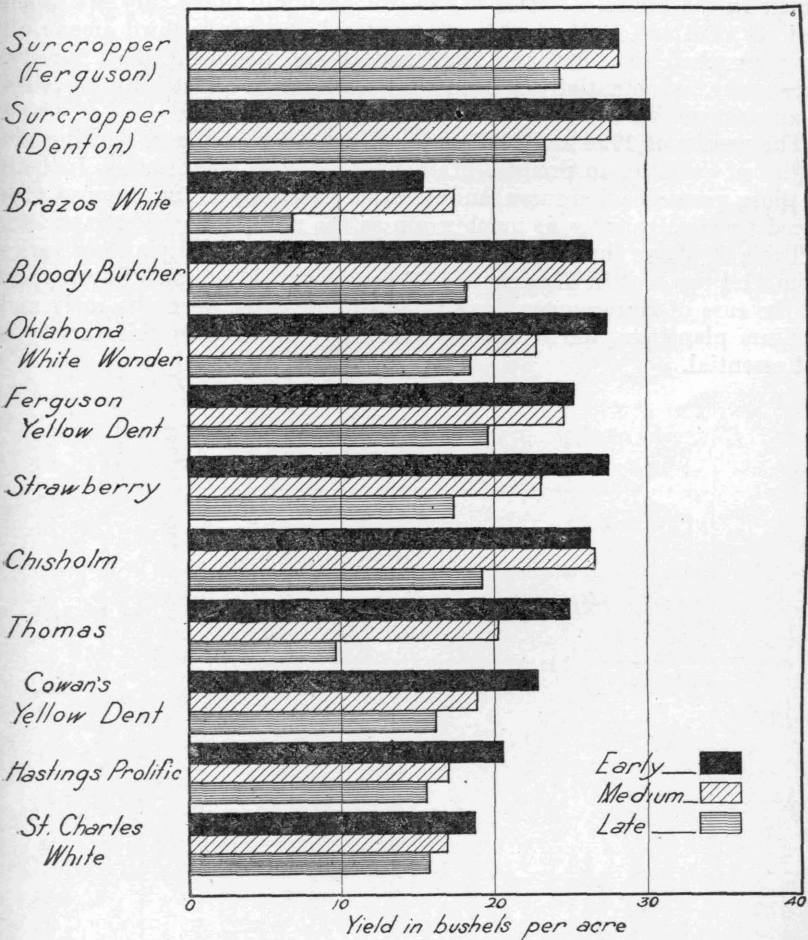 6
Surcropper
(Ferguson)
Surcropper
(Denton)
Brazos White
Bloody Butcher
Oklahoma
White Wonder
Ferguson
Yellow Dent
Strawberry
Chisholm
Thomas
Cowan's
Yellow Dent
Hastings Prolific
St. Charles
White
Early
Medium
Late
0 10 20 30 40
Yield in bushels per acre